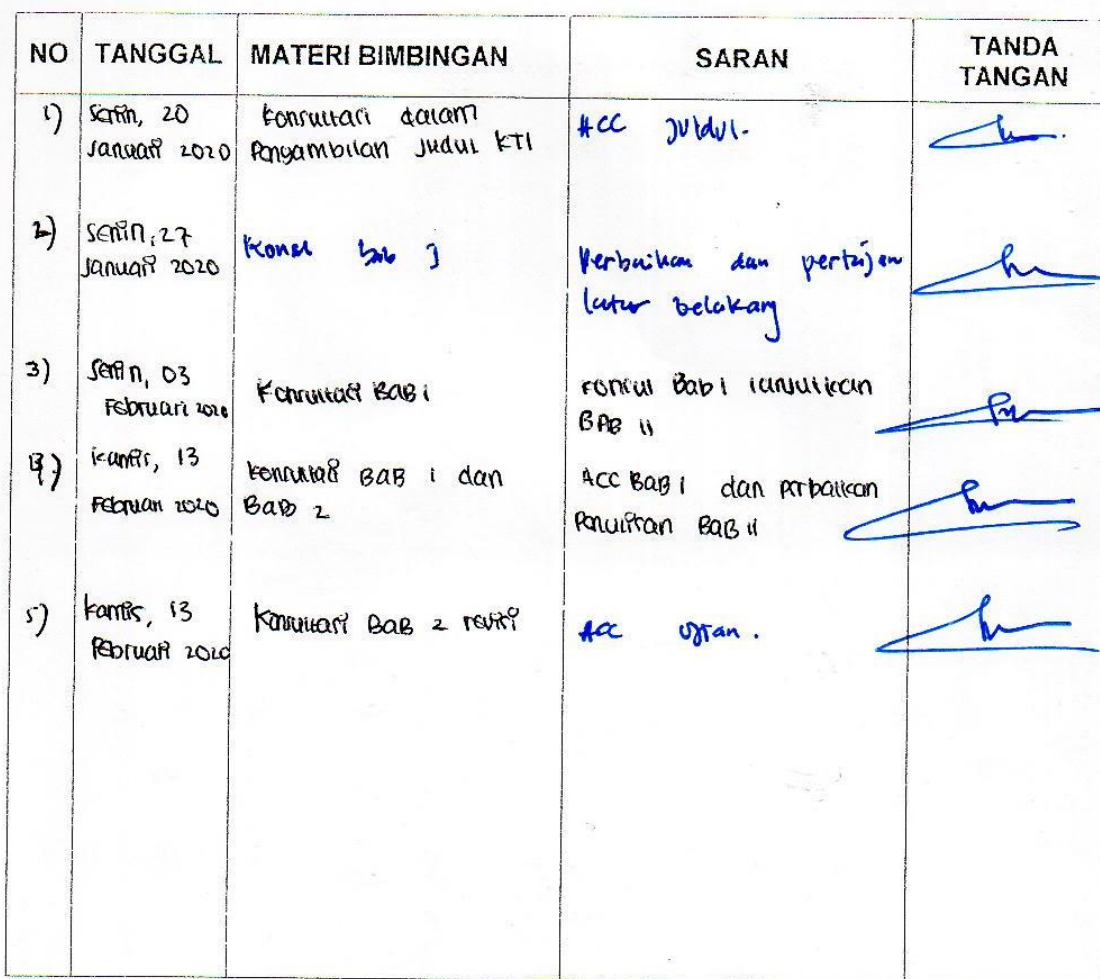 NO TANGGAL MATERI BIMBINGAN SARAN TANDA TANGAN
1) Senin, 20 Januari 2020
Konsultasi dalam
Pengambilan Judul KTI
ACC Juldul.
2) Senin, 27
Januari 2020
Konsul bab I
Perbaikan dan pertajam
latar belakang
3) Senin, 03
Februari 2020
Konsultasi BAB I
Konsul Bab I lanjutkan
BAB II
4) Kamis, 13
Februari 2020
Konsultasi BAB I dan
Bab 2
ACC BAB I dan perbaikan
Penulisan BAB II
5) Kamis, 13
Februari 2020
Konsultasi BAB 2 revisi
ACC ujian.